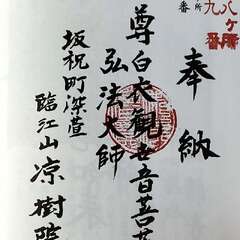 八ヶ所
九番
番所
奉納
尊白衣観世音菩
弘法大師
坂祝町深萱
臨江山凉樹院